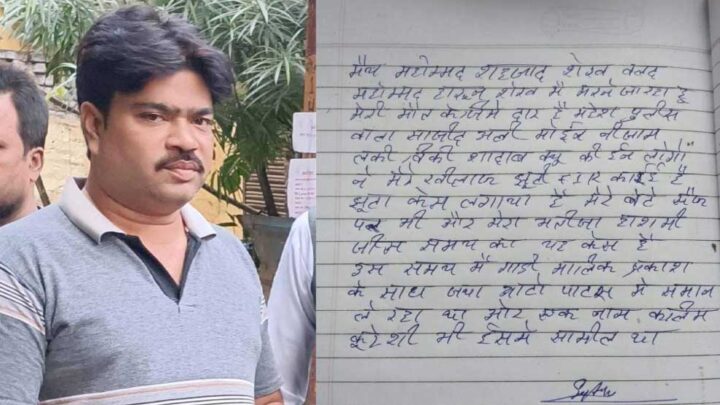 मैय महोम्मद शहजाद शेख वलद
महोम्मद हारून शेख मै मरने जा रहा हू
मेरी मौत के जिमेदार है महेश पुलीस
वाला साजीद अली साईर नीजाम
लकी विकी शादाब क्यु की ईन लोगो
ने मेरे खीलाफ झूटी FIR काई है
झूटा केस लगाया है मेरे बेटे सैफ
पर भी और मेरा भतीजा हाशमी
जीस समय का यह केस है
इस समय मै गाडी मालिक प्रकाश
के साथ जया मोटो पाटस मे समान
ले रहा था और एक नाम कालिम
कूरेशी भी ईसमे सामील था